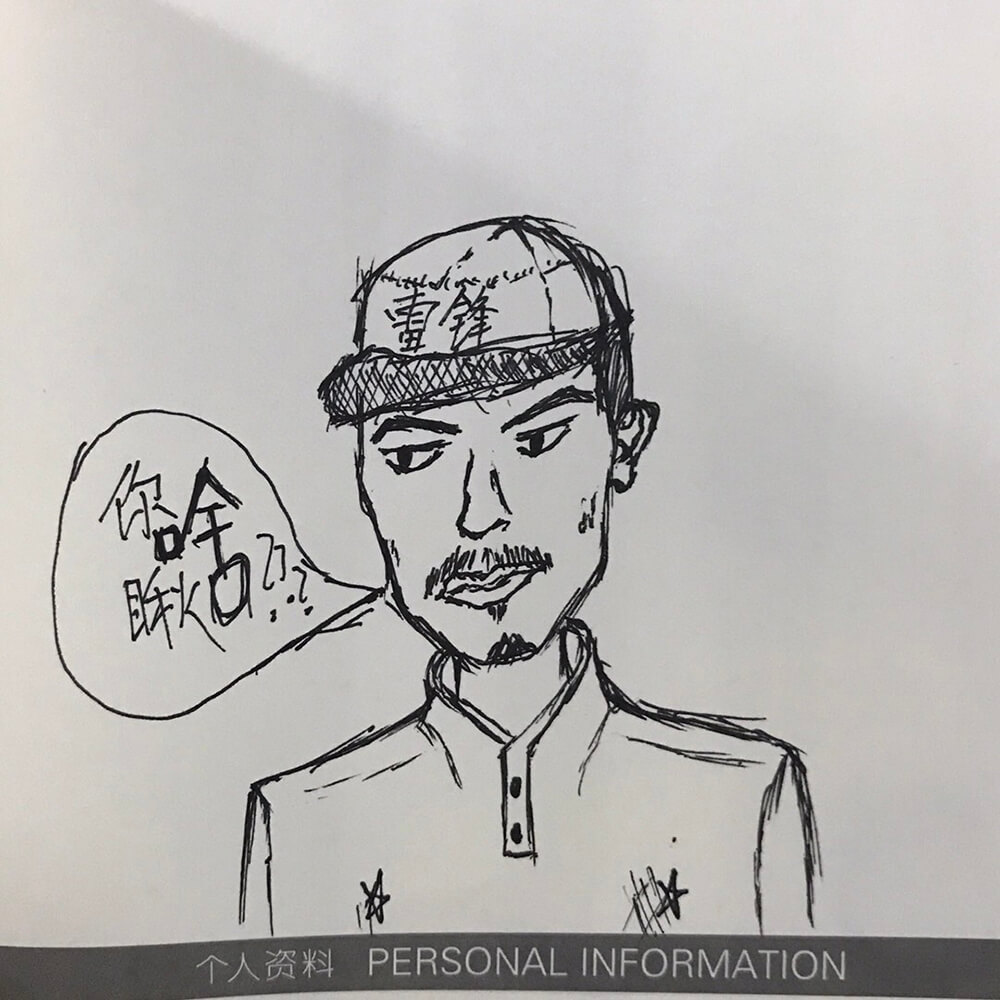 雷锋
你啥
瞅啥??
个人资料 PERSONAL INFORMATION